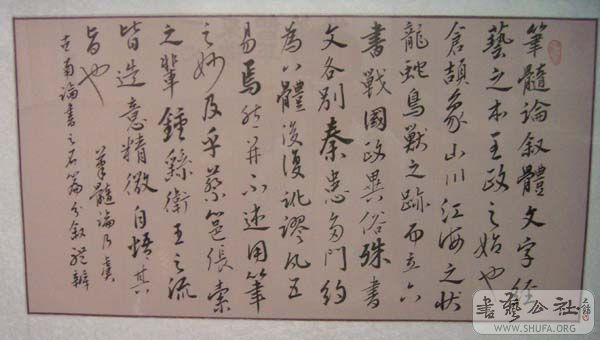 筆髓論叙體文字經
藝之本王政之始也
倉頡象山川江海之狀
龍蛇鳥獸之跡而立六
書戰國政異俗殊書
文各別秦患多門約
為八體後復訛謬凡五
易焉然并不述用筆
之妙及乎蔡邕張索
之輩鍾繇衛王之流
皆造意精微自悟其
旨也
筆髓論乃虞
世南論書之名篇分叙體辨
書藝公社
WWW.SHUFA.ORG